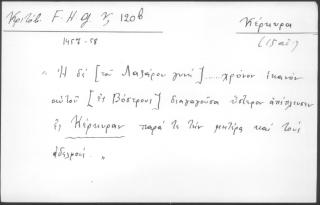 Κριτόβ F.H.G. V, 120β
Κέρκυρα
1457-58
(15 αἰ.)
" Ἡ δὲ [τοῦ Λαζάρου γυνὴ] ..... χρόνον ἱκανὸν
αὐτοῦ [ἐς Βόστρους] διαγαγοῦσα ὕστερον ἀπέπλευσεν
ἐς Κέρκυραν παρά τε τὴν μητέρα καὶ τοὺς
ἀδελφούς. "